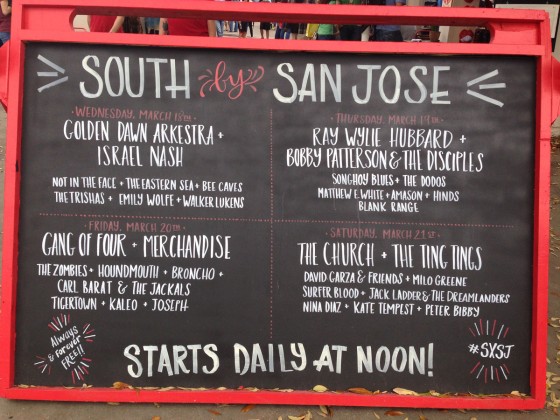 SOUTH by SAN JOSE
WEDNESDAY, MARCH 18TH
GOLDEN DAWN ARKESTRA +
ISRAEL NASH
NOT IN THE FACE + THE EASTERN SEA + BEE CAVES
THE TRISHAS + EMILY WOLFE + WALKER LUKENS
THURSDAY, MARCH 19TH
RAY WYLIE HUBBARD +
BOBBY PATTERSON & THE DISCIPLES
SONGHOY BLUES + THE DODOS
MATTHEW E. WHITE + AMASON + HINDS
BLANK RANGE
FRIDAY, MARCH 20TH
GANG OF FOUR + MERCHANDISE
THE ZOMBIES + HOUNDMOUTH + BRONCHO +
CARL BARAT & THE JACKALS
TIGERTOWN + KALEO + JOSEPH
SATURDAY, MARCH 21ST
THE CHURCH + THE TING TINGS
DAVID GARZA & FRIENDS + MILO GREENE
SURFER BLOOD + JACK LADDER & THE DREAMLANDERS
NINA DIAZ + KATE TEMPEST + PETER BIBBY
Always
& forever
FREE!!
STARTS DAILY AT NOON!
#SXSJ